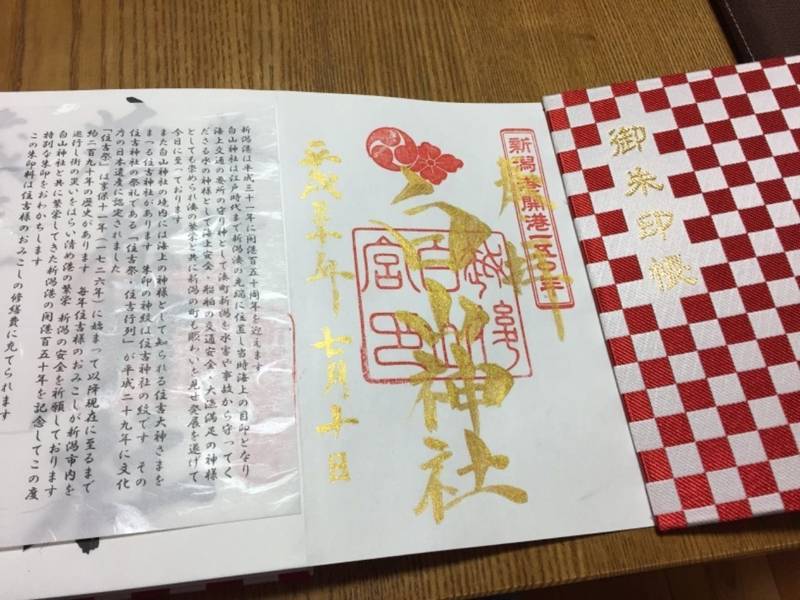 御朱印帳
新潟港開港一五〇年
白山神社
平成三十年七月十日
新潟港は平成三十一年に開港百五十周年を迎えます
白山神社は江戸時代まで新潟湊の先端に位置し当時海上の目印となり
海上交通の要所の守り神として湊町新潟を水害や事故から守ってく
ださる水の神様として海上安全・船舶の交通安全・大漁満足の神様
としても崇められ湊の繁栄と共に新潟の町も賑わいを見せ発展を遂げて
今日に至っております
また白山神社の境内には海上の神様として知られる住吉大神さまを
まつる住吉神社があります 朱印の神紋は住吉神社の紋です その
住吉神社の祭礼である「住吉祭・住吉行列」が平成二十九年に文化
庁の日本遺産に認定されました
「住吉祭」は享保十一年(一七二六年)に始まって以降現在に至るまで
約二百九十年の歴史があります 毎年住吉様のおみこしが新潟市内を
巡行し街の災いをはらい清め港の繁栄 新潟の安全を祈願しております
白山神社と共に繁栄してきた新潟港の開港百五十年を記念してこの度
特別な朱印をおわかちします
この朱印料は住吉様のおみこしの修繕費に充てられます